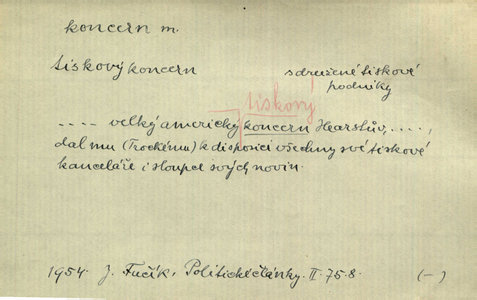 koncern m.
tiskový koncern
sdružené tiskové
podniky
tiskový
.... velký americký koncern Hearstův, ....,
dal mu (Trockému) k disposici všechny své tiskové
kanceláře i sloupce svých novin.
1954. J. Fučík, Politické články. II. 758. (–)